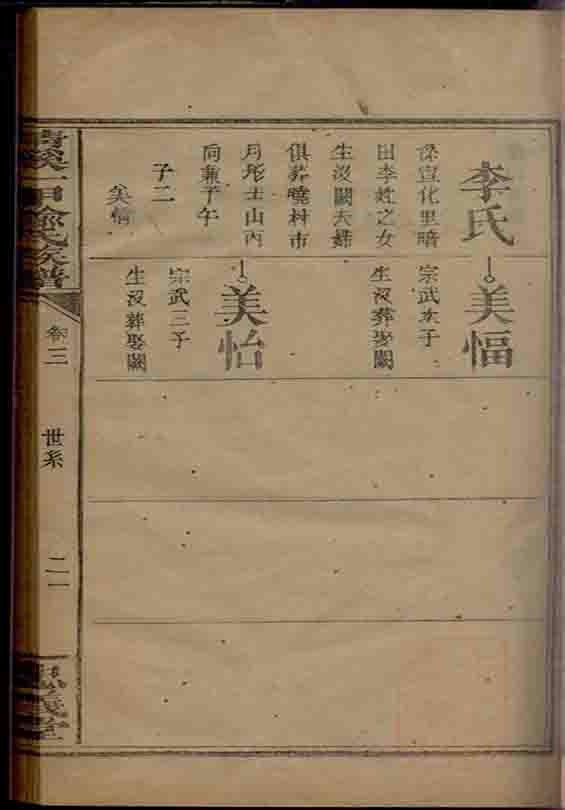 李氏
係宣化里暗
田李姓之女
生沒闕夫婦
俱葬曉村市
月形土山丙
向兼子午
子二
美愊
宗武次子
生沒葬娶闕
美怡
宗武三子
生沒葬娶闕
氏族譜
卷三
世系
二一
義堂